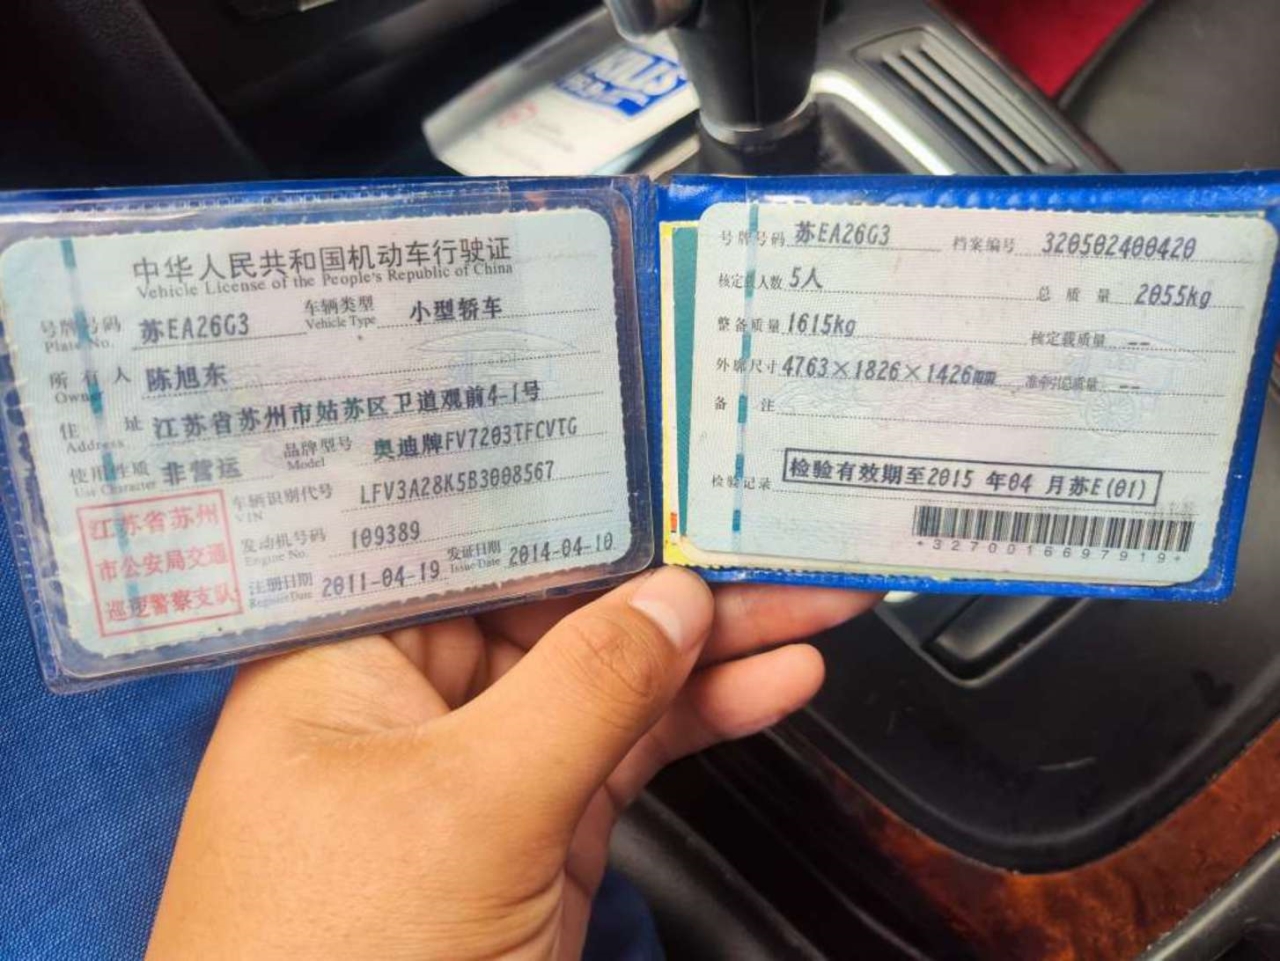 中华人民共和国机动车行驶证
Vehicle License of the People's Republic of China
号牌号码 苏EA26G3 车辆类型 小型轿车
Plate No. Vehicle Type
所有人 陈旭东
Owner
住址 江苏省苏州市姑苏区卫道观前4-1号
Address
使用性质 非营运 品牌型号 奥迪牌FV7203TFCVTG
Use Character Model
车辆识别代号 LFV3A28K5B3008567
VIN
发动机号码 109389
Engine No.
注册日期 2011-04-19 发证日期 2014-04-10
Register Date Issue Date
江苏省苏州
市公安局交通
巡逻警察支队
号牌号码 苏EA26G3 档案编号 320502400420
核定载人数 5人 总质量 2055kg
整备质量 1615kg 核定载质量 --
外廓尺寸 4763×1826×1426mm 准牵引总质量 --
备注
检验记录 检验有效期至2015年04月苏E(01)
*3270016697919*